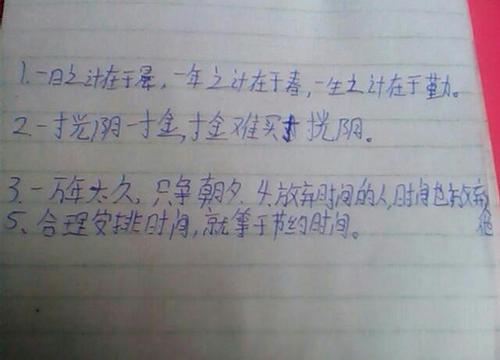 1.一日之计在于晨,一年之计在于春,一生之计在于勤。
2.一寸光阴一寸金,寸金难买寸光阴。
3.一万年太久,只争朝夕.4.放弃时间的人,时间也放弃他
5、合理安排时间,就等于节约时间。